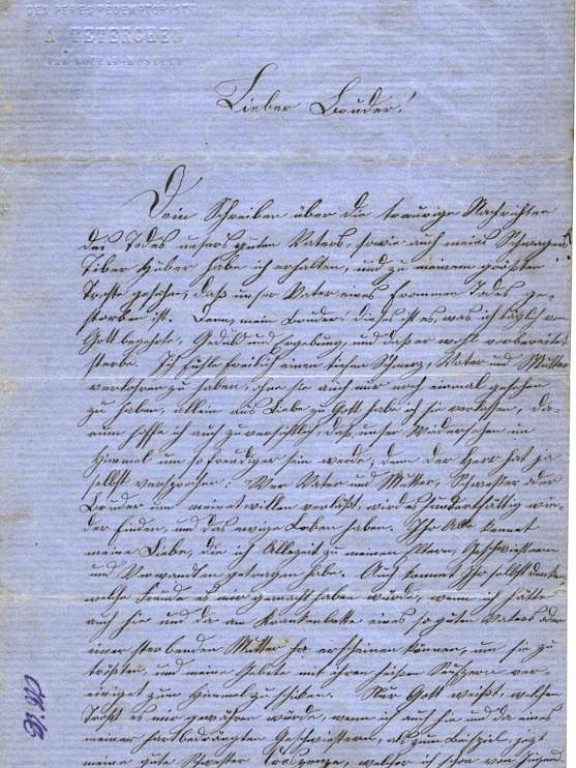 A. PETERSHEN
Lieber Bruder!
Dein Schreiben über die traurige Nachrichten
des Todes unsers guten Vaters, sowie auch meines Schwagers
Tiber Huber habe ich erhalten, und zu meinem größten
Troste gesehen, daß unser Vater eines frommen Todes ge-
storben ist. Denn, mein Bruder! dieses ist es, was ich täglich von
Gott begehrte, Geduld und Ergebung, und daß er wohl vorbereitet
sterbe. Ich fühle freilich einen tiefen Schmerz, Vater und Mutter
verlohren zu haben, ohne sie auch nur noch einmal gesehen
zu haben, allein aus Liebe zu Gott habe ich sie verlassen, da-
rum hoffe ich auch zuversichtlich, daß unser Wiedersehen im
Himmel um so freudiger sein werde, denn der Herr hat ja
selbst versprochen: Wer Vater und Mutter, Schwester oder
Bruder um meinetwillen verläßt, wird es hundertfältig wie-
der finden, und das ewige Leben haben. Ihr Alle kennet
meine Liebe, die ich Allezeit zu meinen Eltern, Geschwistern
und Verwandten getragen habe. Auch könnet Ihr selbst denken,
welche Freude es mir gemacht haben würde, wenn ich hätte
auch hie und da am Krankenbette eines so guten Vaters oder
einer sterbenden Mutter erscheinen können, um sie zu
trösten, und meine Gebete mit ihren heißen Seufzern ver-
einiget zum Himmel zu schicken. Nur Gott weißt, welchen
Trost es mir gewähren würde, wenn ich auch hie und da eines
meiner hartbedrängten Geschwistern, als zum Beispiel, jetzt
meine gute Schwester Creszenze, welche ich schon von Jugend